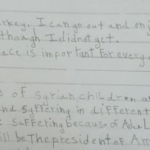 I can go out and enj
though I did not.
ace is important for every
s of syrian children ar
and suffering in different
suffering because of
ill be The president of Am